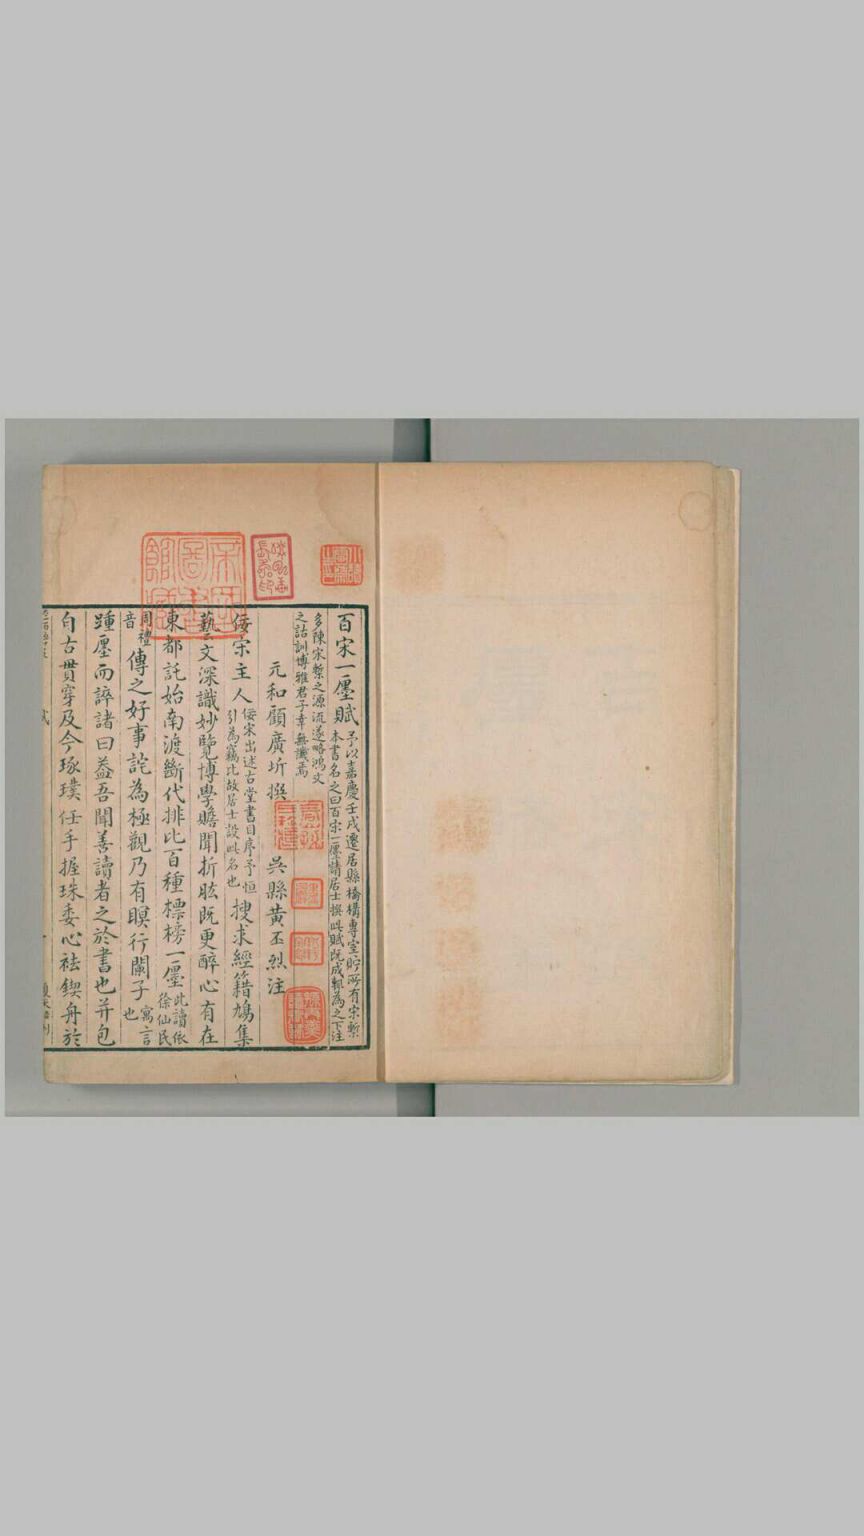 百宋一廛賦 予以嘉慶壬戌遷居縣橋構專室貯所有宋槧本書名之曰百宋一廛請居士撰此賦既成輒為之下注
多陳宋槧之源流遂略鴻文之詁訓博雅君子幸無譏焉
元和顧廣圻撰 吳縣黃丕烈注
佞宋主人 佞宋出述古堂書目序予恒引為竊比故居士設此名也 搜求經籍鳩集
藝文深識妙覽博學贍聞折肱既更醉心有在
東都託始南渡斷代排比百種標榜一廛 此讀依徐仙民
周禮音 傳之好事詫為極觀乃有瞑行闒子 寓言也
踵廛而誶諸曰蓋吾聞善讀者之於書也并包
自古貫穿及今琢璞任手握珠委心袪鍥舟於